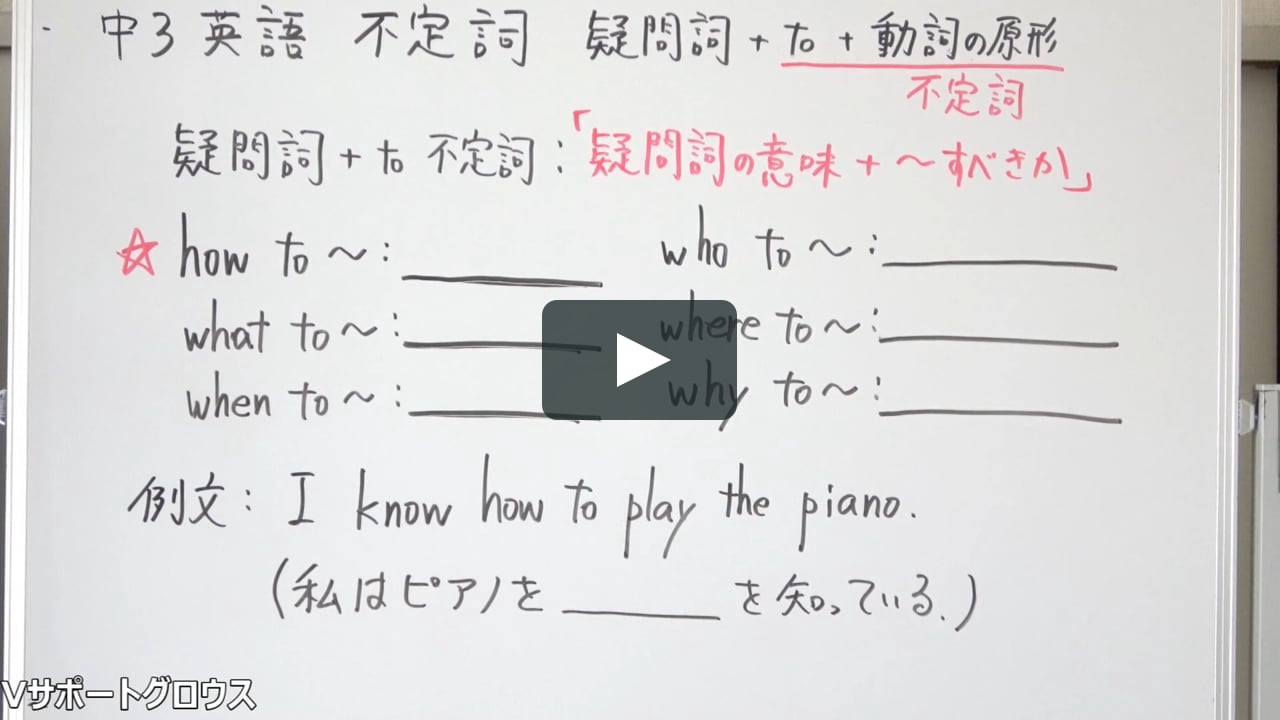 中3 英語 不定詞 疑問詞 + to + 動詞の原形
不定詞
疑問詞 + to 不定詞 : 「疑問詞の意味 + 〜すべきか」
☆ how to 〜 : ______ who to 〜 : ______
what to 〜 : ______ where to 〜 : ______
when to 〜 : ______ why to 〜 : ______
例文 : I know how to play the piano.
(私はピアノを ______ を知っている.)
Vサポートグロウス